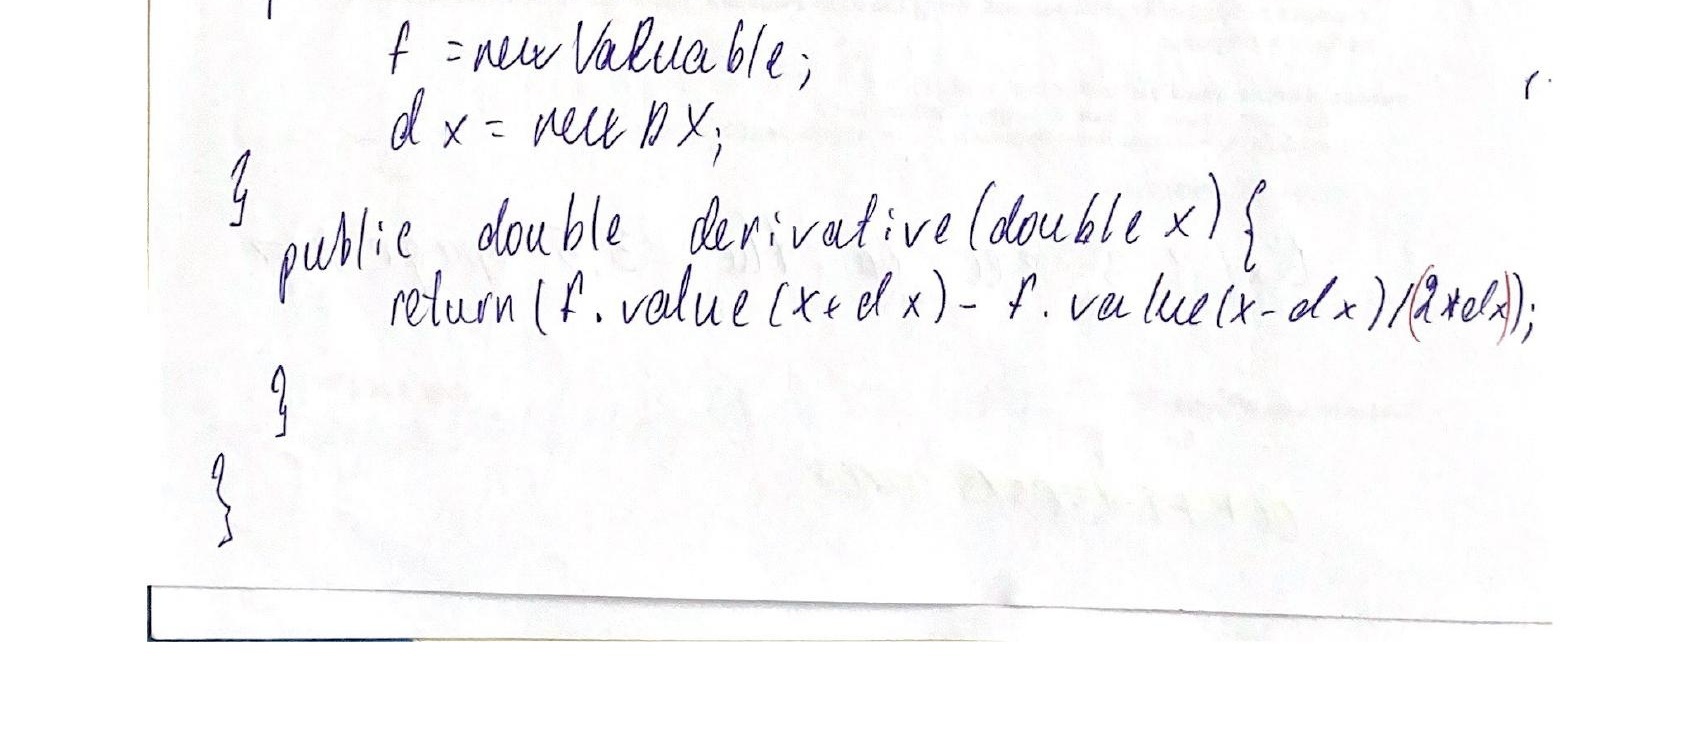 f = newValuable;
dx = newDX;
}
public double derivative(double x){
return(f.value(x+dx)-f.value(x-dx)/(2*dx));
}
}